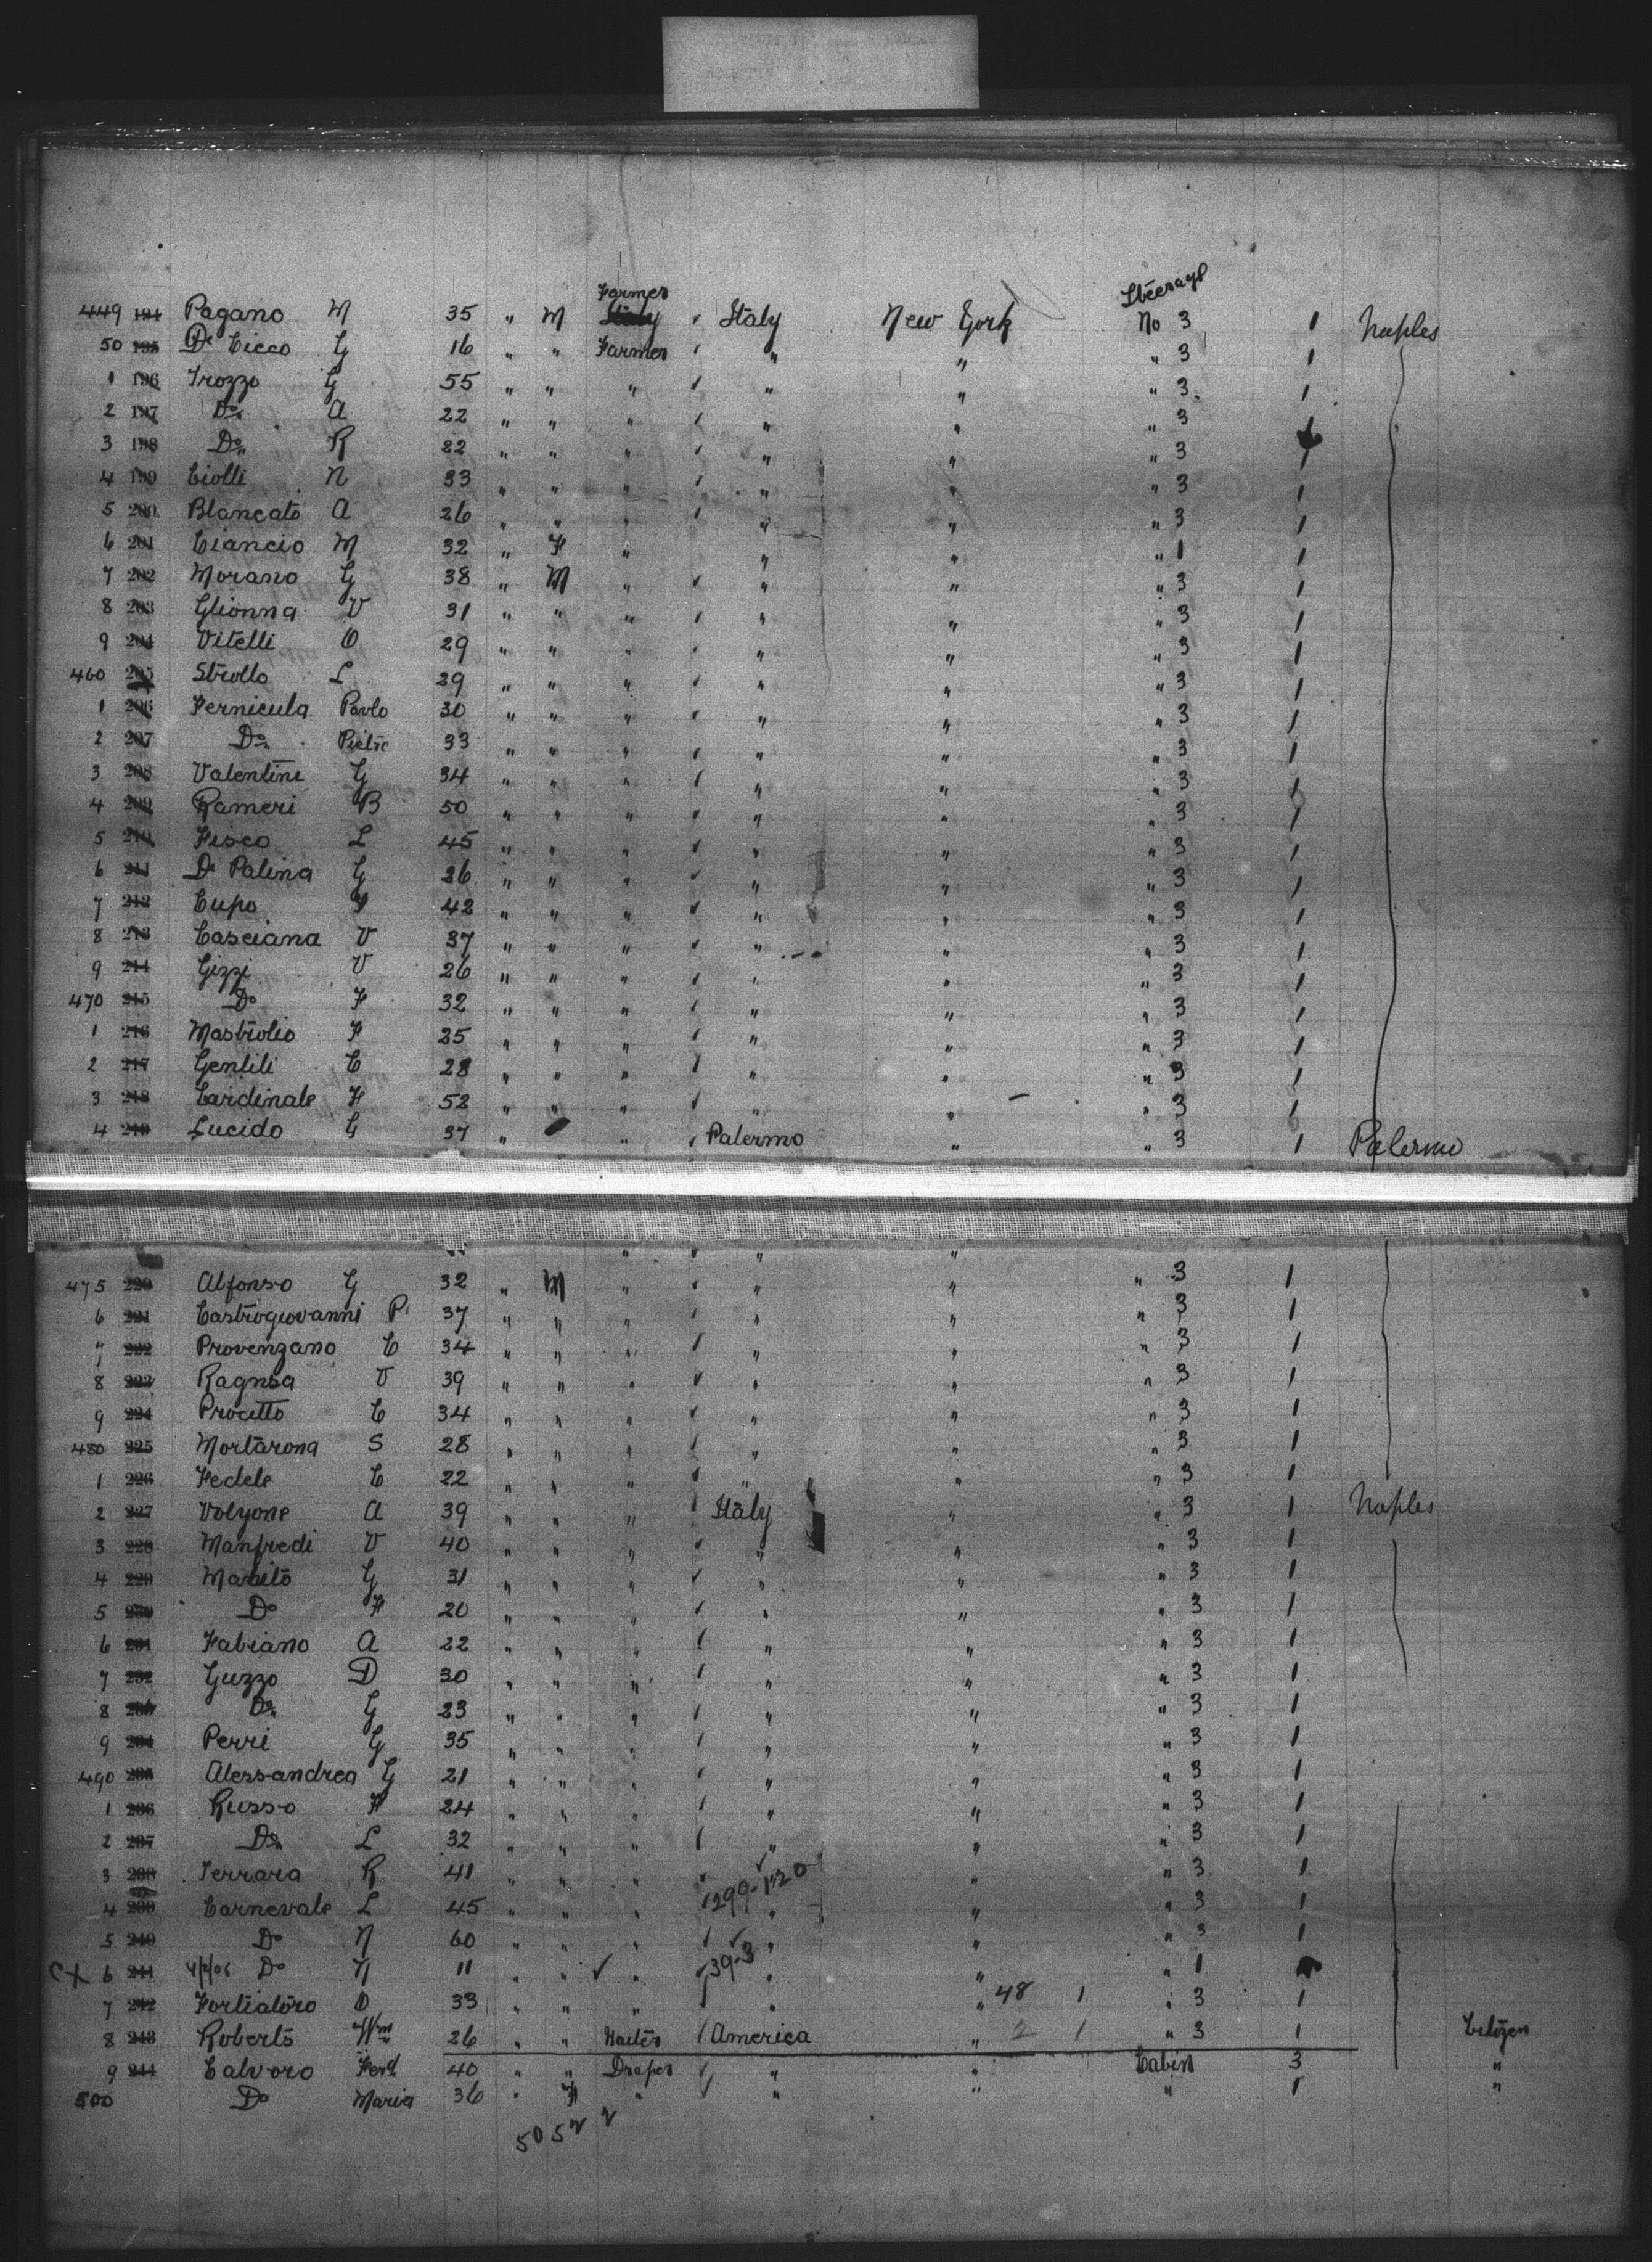 Farmer Steerage
449 194 Pagano M 35 " M Italy Italy New York No 3 1 Naples
50 195 De Cicco G 16 " " Farmer " " " 3 1
1 196 Trozzo G 55 " " " " " " 3 1
2 197 Do A 22 " " " " " " 3 1
3 198 Do R 22 " " " " " " 3 1
4 199 Ciolli N 33 " " " " " " 3 1
5 200 Blancato A 26 " " " " " " 3 1
6 201 Ciancio M 32 " F " " " " 1 1
7 202 Morano G 38 " M " " " " 3 1
8 203 Glionna V 31 " " " " " " 3 1
9 204 Vitelli O 29 " " " " " " 3 1
460 205 Strollo L 29 " " " " " " 3 1
1 206 Fernicula Paolo 30 " " " " " " 3 1
2 207 Do Pietro 33 " " " " " " 3 1
3 208 Valentini G 34 " " " " " " 3 1
4 209 Rameri B 50 " " " " " " 3 1
5 210 Fisco L 45 " " " " " " 3 1
6 211 De Palina G 26 " " " " " " 3 1
7 212 Cupo 42 " " " " " " 3 1
8 213 Casciana V 37 " " " " " " 3 1
9 214 Gizzi V 26 " " " " " " 3 1
470 215 Do F 32 " " " " " " 3 1
1 216 Mastrolio F 25 " " " " " " 3 1
2 217 Gentili C 28 " " " " " " 3 1
3 218 Cardinale F 52 " " " " " " 3 1
4 219 Lucido G 37 " " Palermo " " 3 1 Palermo
475 220 Alfonso G 32 " M " " " " 3 1
6 221 Castrogiovanni P 37 " " " " " " 3 1
7 222 Provenzano C 34 " " " " " " 3 1
8 223 Ragusa V 39 " " " " " " 3 1
9 224 Procetto C 34 " " " " " " 3 1
480 225 Mortarona S 28 " " " " " " 3 1
1 226 Fedele C 22 " " " " " " 3 1
2 227 Volyone A 39 " " " Italy " " 3 1 Naples
3 228 Manfredi V 40 " " " " " " 3 1
4 229 Marito G 31 " " " " " " 3 1
5 230 Do F 20 " " " " " " 3 1
6 231 Fabiano A 22 " " " " " " 3 1
7 232 Guzzo D 30 " " " " " " 3 1
8 Do G 23 " " " " " " 3 1
9 234 Perri G 35 " " " " " " 3 1
490 235 Alessandrea G 21 " " " " " " 3 1
1 236 Russo F 24 " " " " " " 3 1
2 237 Do L 32 " " " " " " 3 1
3 238 Ferrara R 41 " " " " " " 3 1
4 239 Carnevale L 45 " " " 299-1320 " " " 3 1
5 240 Do N 60 " " " " " " 3 1
CX 6 241 Do N 11 " " " 39-3 " " " 1
7 242 Fortiatoro O 33 " " " " " 48 1 " 3 1
8 243 Roberts Wm 26 " " Waiter America " 2 1 " 3 1 Citizen
9 244 Calvoro Ferd. 40 " " Draper " " Cabin 3 "
500 Do Maria 36 " F " " " " 1 "
50 5